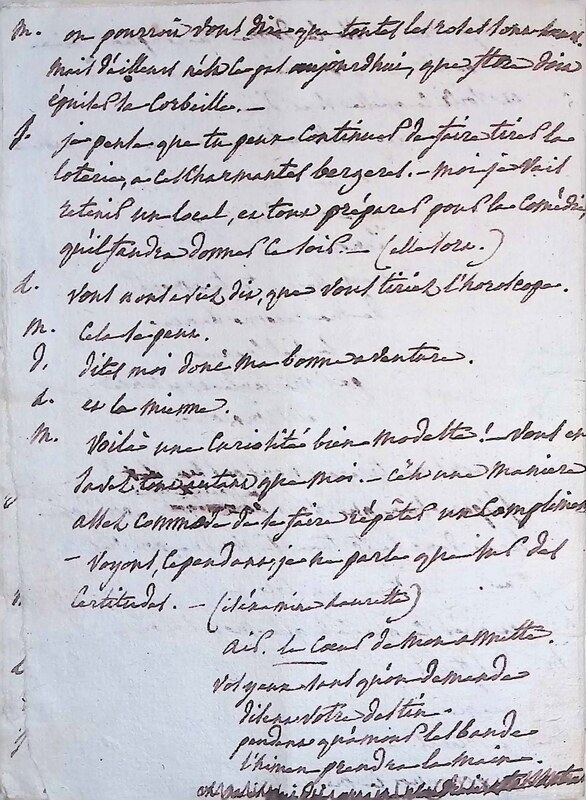 m. on pourroit vous dire que toutes les roses sont
mais d'ailleurs n'est ce pas aujourdhui, que flore doit
épuiser sa Corbeille. —
j. je pense que tu peux Continuer de faire tirer la
loterie, a ces Charmantes bergeres. — moi je vais
retenir un local, et tout préparer pour la Comédie,
qu'il faudra donner ce soir. — (elle sort.)
d. vous nous aviez dit, que vous tiriez l'horoscope.
m. Cela se peut.
d. dites moi donc ma bonne aventure.
d. et la mienne.
m. Voilà une Curiosité bien modeste! — Vous en
savez autant que moi. — C'est une maniere
assez Commode de se faire répéter un Compliment
— Voyons, Cependant, je ne parle que sur des
Certitudes. — (il laurette)
air. le Coeur de mon annette.
vos yeux sans qu'on demande
disent votre destin.
pendant qu'amour les bande
l'himen prendra la main.